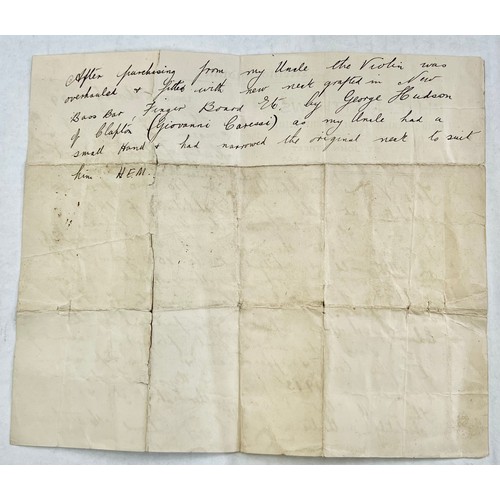 After purchasing from my Uncle the Violin was
overhauled & fitted with new neck grafted in New
Bass Bar Finger Board Etc by George Hudson
of Clapton (Giovanni Caressi) as my Uncle had a
small Hand & had narrowed the original neck to suit
him H.E.M.